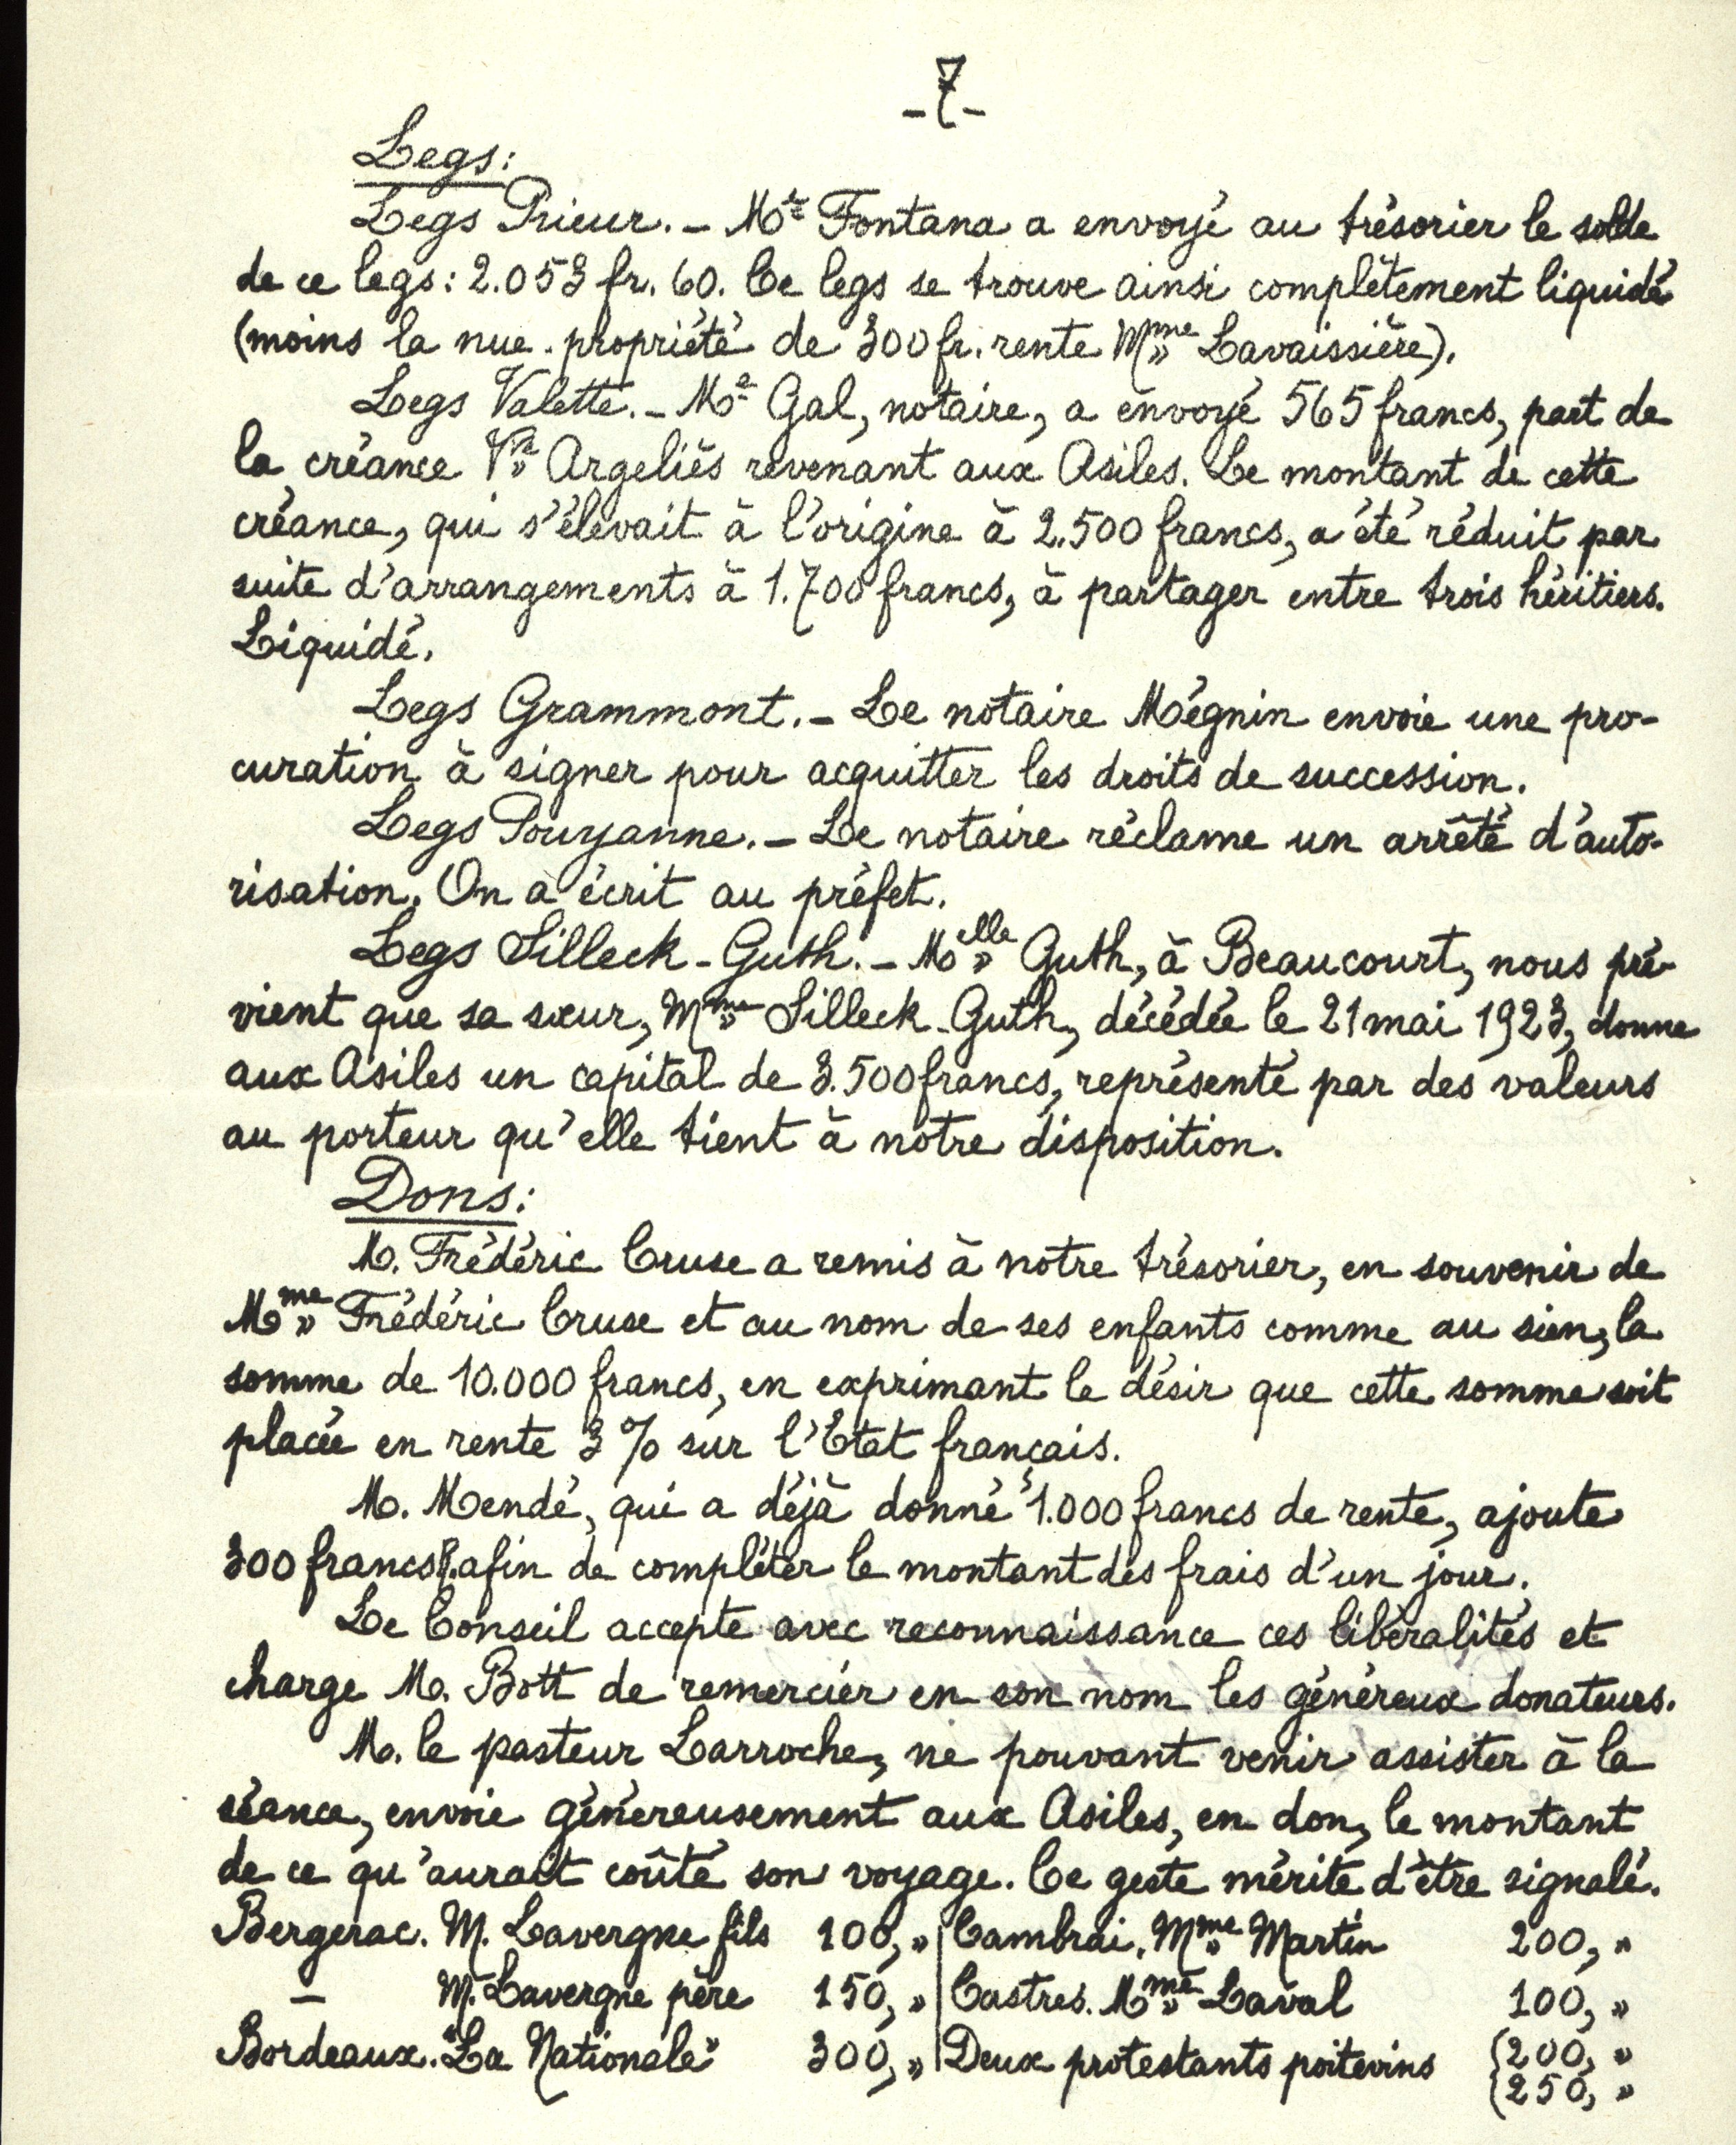 -7-
Legs:
Legs Prieur. - Me Fontana a envoyé au trésorier le solde
de ce legs: 2.053 fr. 60. Ce legs se trouve ainsi complètement liquidé
(moins la nue-propriété de 300 fr. rente Mme Lavaissière).
Legs Valette. - Me Gal, notaire, a envoyé 565 francs, part de
la créance Ve Argeliès revenant aux Asiles. Le montant de cette
créance, qui s'élevait à l'origine à 2.500 francs, a été réduit par
suite d'arrangements à 1.700 francs, à partager entre trois héritiers.
Liquidé.
Legs Grammont. - Le notaire Mégnin envoie une pro-
curation à signer pour acquitter les droits de succession.
Legs Pouyanne. - Le notaire réclame un arrêté d'auto-
risation. On a écrit au préfet.
Legs Silleck-Guth. - Melle Guth, à Beaucourt, nous pré-
vient que sa sœur, Mme Silleck-Guth, décédée le 21 mai 1923, donne
aux Asiles un capital de 3.500 francs, représenté par des valeurs
au porteur qu'elle tient à notre disposition.
Dons:
M. Frédéric Cruse a remis à notre trésorier, en souvenir de
Mme Frédéric Cruse et au nom de ses enfants comme au sien, la
somme de 10.000 francs, en exprimant le désir que cette somme soit
placée en rente 3 % sur l'Etat français.
M. Mendé, qui a déjà donné 1.000 francs de rente, ajoute
300 francs afin de compléter le montant des frais d'un jour.
Le Conseil accepte avec reconnaissance ces libéralités et
charge M. Bott de remercier en son nom les généreux donateurs.
M. le pasteur Larroche, ne pouvant venir assister à la
séance, envoie généreusement aux Asiles, en don, le montant
de ce qu'aurait coûté son voyage. Ce geste mérite d'être signalé.
Bergerac. M. Lavergne fils 100, " Cambrai. Mme Martin 200, "
— M. Lavergne père 150, " Castres. Mme Laval 100, "
Bordeaux. "La Nationale" 300, " Deux protestants poitevins (200, "
(250, "